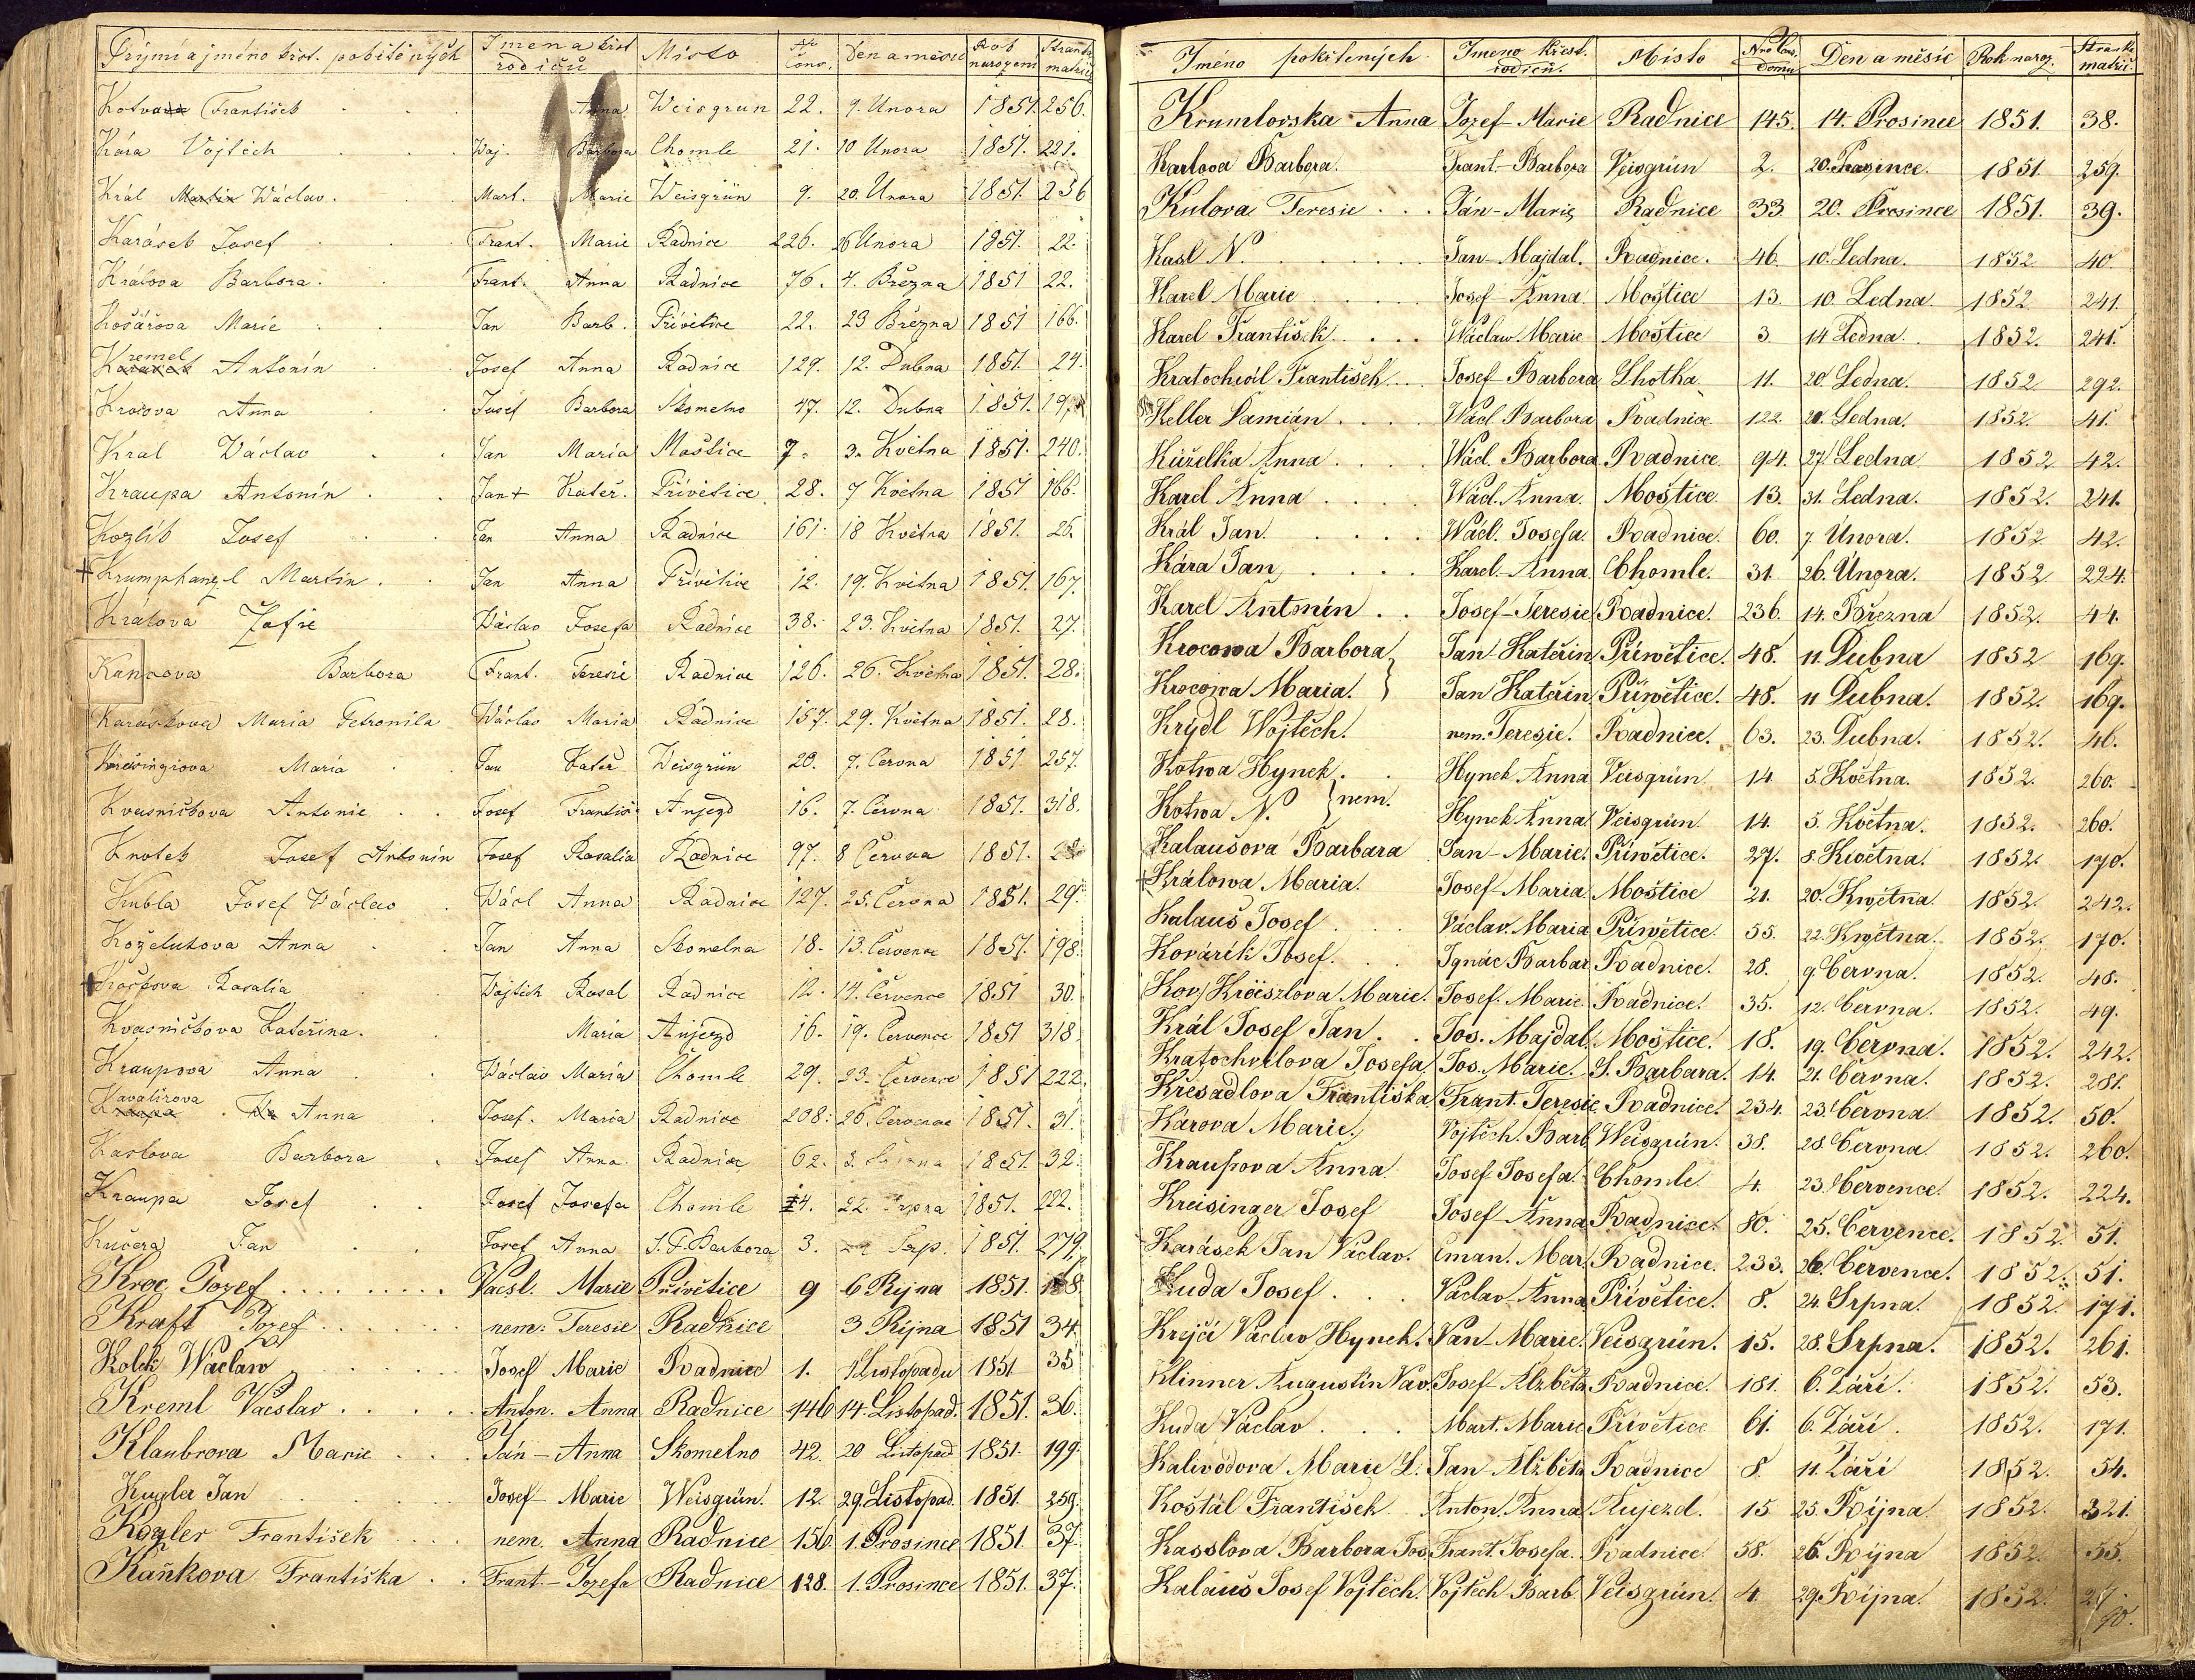 Příjmí a jméno křest. pokřtěných Jmena křest. rodičů Místo Nr Cons. Den a měsíc Rok narození Stránka matriky
Kotva František Anna Weisgrun 22. 9. Unora 1851. 256.
Kára Vojtěch Voj. Barbora Chomle 21. 10 Unora 1851. 221.
Král Martin Wáclav. Mart. Marie Weisgrün 9. 20. Unora 1851. 256
Karásek Josef Frant. Marie Radnice 226. 26 Unora 1851. 22.
Králova Barbora. Frant. Anna Radnice 76. 4. Března 1851 22.
Košářova Marie Jan Barb. Přívětice 22. 23 Března 1851 166.
Kremel Antonín Josef Anna Radnice 129. 12. Dubna 1851. 24.
Krocova Anna Josef Barbora Skomelno 47. 12. Dubna 1851. 197
Kral Václav Jan Maria Moštice 7. 3. Května 1851. 240.
Kraupa Antonín Jan + Kateř. Přívětice 28. 7 Května 1851 166.
Kozlík Josef Jan Anna Radnice 161. 18 Května 1851. 26.
+ Krumphanzl Martin. Jan Anna Přívětice 12. 19. Května 1851. 167.
Králova Žofie Václav Josefa Radnice 38. 23. Května 1851. 27.
Barbora Frant. Teresie Radnice 126. 26. Května 1851. 28.
Karáskova Maria Petronila Václav Maria Radnice 157. 29. Května 1851. 28.
Maria Jan Kateř Weisgrün 20. 7. Června 1851. 257.
Kvasničkova Antonie Josef Františ. Aujezd 16. 7. Června 1851. 318.
Knotek Josef Antonín Josef Rosalia Radnice 97. 8 Června 1851. 28
Kubla Josef Václav Václ Anna Radnice 127. 25. Června 1851. 29.
Koželuhova Anna Jan Anna Skomelna 18. 13. Července 1851. 198.
+ Kočkova Rosalia Vojtěch Rosal Radnice 12. 14. Července 1851 30.
Kvasničkova Kateřina. Maria Aujezd 16. 19. Července 1851 318.
Kraupova Anna Václav Maria Chomle 29. 23. Července 1851 222.
Kavalirova Anna Josef. Maria Radnice 208. 26. Července 1851. 31.
Karlova Barbora Josef Anna. Radnice 62. 3. Srpna 1851. 32.
Kraupa Josef Josef Josefa Chomle 4. 22. Srpna 1851. 222.
Kučera Jan Josef Anna S. F. Barbora 3. Srp. 1851. 279.
Kroc Jozef Vacsl. Marie Přívětice 9 6 Rijna 1851. 168.
Kraft Jozef nem: Teresie Radnice 3 Rijna 1851 34.
Kolek Wáclaw Josef Marie Radnice 1. 1 Listopadu 1851 35
Kreml Václav Anton. Anna Radnice 146 14. Listopad. 1851. 36.
Klaubrova Marie Ján - Anna Skomelno 42. 20 Listopad 1851. 199.
Kugler Jan Josef - Marie Weisgrün. 12. 29. Listopad. 1851. 259.
Kogler František nem. Anna Radnice 156. 1. Prosince 1851. 37.
Kaňkova Františka Frant. - Jozefa Radnice 128. 1. Prosince 1851. 37.
Jméno pokřtených Jmeno Křest. rodičů. Místo Nro Cons. Domu Den a měsíc Rok naroz. Stránk. matrič.
Krumlovska Anna Jozef - Marie Radnice 145. 14. Prosince 1851. 38.
Karlova Barbora. Frant. - Barbora Veisgrün 2. 20. Prosince. 1851. 259.
Kulova Teresie Ján - Marie Radnice 33. 20. Prosince 1851. 39.
Kasl N. Jan - Majdal. Radnice. 46. 10. Ledna. 1852. 40
Karel Marie Josef Anna. Moštice 13. 10. Ledna 1852 241.
Karel František Wáclaw Marie Moštice 3 14 Ledna. 1852. 241.
Kratochwíl František Josef - Barbora Lhotka 11. 20. Ledna. 1852 292.
Keller Damián Wácl. Barbora Radnice 122. 21. Ledna. 1852. 41.
Kuželka Anna Wácl. Barbora Radnice 94. 27. Ledna 1852 42.
Karel Anna Wácl. Anna. Moštice. 13. 31. Ledna. 1852. 241.
Král Jan Wácl. Josefa. Radnice. 60. 7. Února. 1852 42.
Kára Jan Karel - Anna. Chomle. 31. 26. Února. 1852 224.
Karel Antonín Josef - Teresie Radnice. 236. 14. Března 1852. 44.
Krocowa Barbora } Jan - Kateřin Příwětice. 48. 11. Dubna 1852 169.
Krocowa Maria. Jan Kateřin Příwětice. 48. 11 Dubna. 1852. 169.
Krýdl Wojtěch. nem. Teresie. Radnice. 63. 23. Dubna. 1852. 46.
Kotwa Hynek. Hynek Anna Veisgrün 14 5. Května. 1852. 260.
Kotwa N. } nem. Hynek Anna. Veisgrün 14. 5. Května. 1852. 260.
Kalaušova Barbara Jan - Marie. Příwětice. 27. 8. Května. 1852. 170.
+ Králowa Maria. Josef - Maria Moštice 21. 20. Kwětna 1852. 242.
Kalauš Josef Václav. Maria Příwětice. 55. 22. Kwětna. 1852. 170.
Kovářík Josef. Ignác Barbar Radnice. 28. 9. Června. 1852. 48.
Kov/Kröiszlova Marie. Josef. Marie. Radnice. 35. 12. Června. 1852. 49.
Král Josef Jan Jos. Majdal. Moštice. 18. 19. Června. 1852. 242.
Kratochvílova Josefa Jos. Marie. S. Barbara. 14. 21. Června. 1852. 281.
Křesadlova Františka Frant. Teresie Radnice. 234. 23. Června 1852. 50.
Károva Marie. Vojtěch. Barb. Weisgrün. 38. 28. Června 1852. 260.
Kraupova Anna Josef Josefa. Chomle 4. 23. Července. 1852. 224.
Kreisinger Josef Josef Anna Radnice. 80. 25. Července. 1852. 51.
Karásek Jan Václav. Eman. Mar. Radnice. 233. 26. Července. 1852. 51.
Kuda Josef Václav Anna Přívětice. 8. 24. Srpna. 1852. 171.
Krejčí Václav Hynek. Van. Marie. Veisgrün. 15. 28. Srpna. 1852. 261.
Klinner Augustin Vav. Josef - Alžběta Radnice. 181. 6. Září. 1852. 53.
Kuda Václav Mart. Marie Přívětice 61. 6. Září. 1852. 171.
Kalivodova Marie L. Jan Alžběta Radnice 8. 11. Září 1852. 54.
Koštál František Anton. Anna Aujezd. 15 25. Října. 1852. 321.
Kasslova Barbora Jos. Frant. Josefa. Radnice 58. 26. Října 1852. 55.
Kalauš Josef Vojtěch. Vojtěch Barb. Veisgrün. 4. 29. Října. 1852.